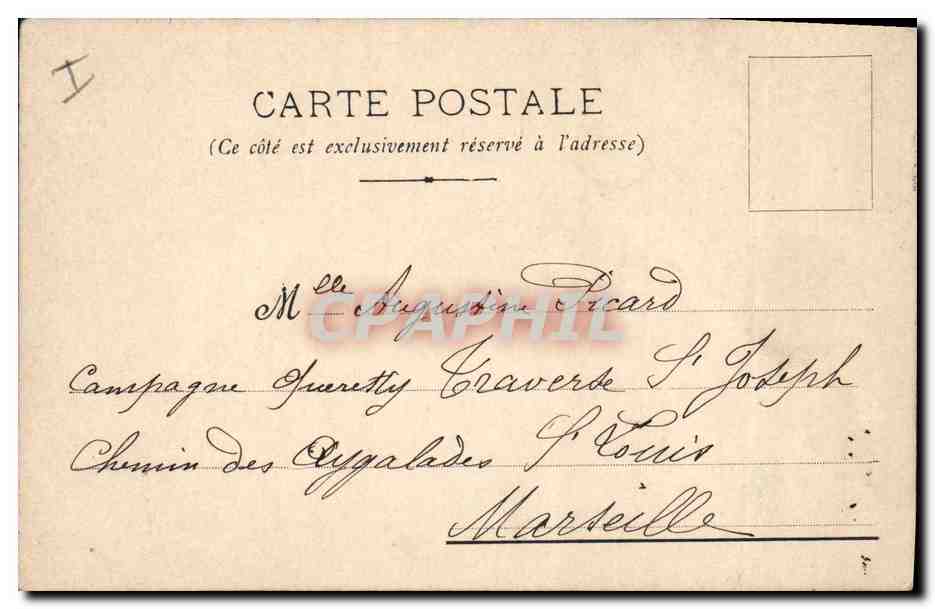 I
CARTE POSTALE
(Ce côté est exclusivement réservé à l'adresse)
Mlle Augustine Picard
CPAPHIL
Campagne Queretty Traverse St Joseph
Chemin des Aygalades St Louis
Marseille